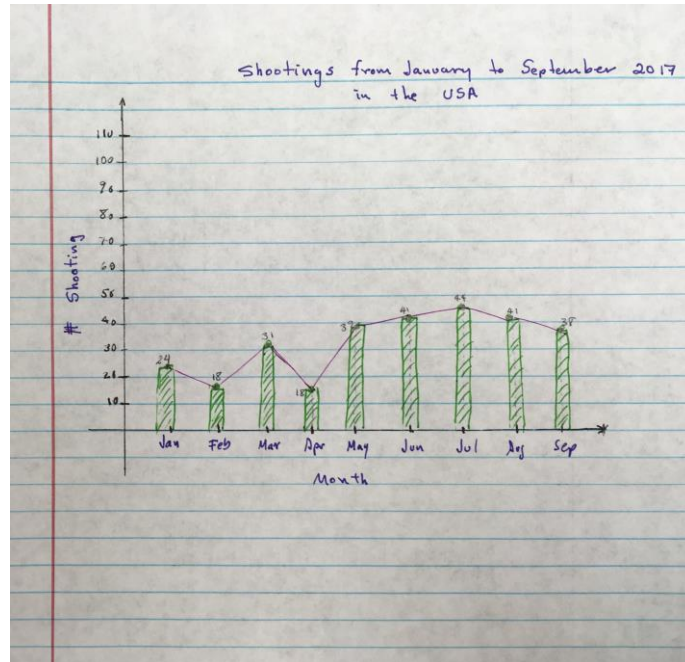 Shootings from January to September 2017
in the USA
110
100
90
80
70
60
50
40
30
20
10
# Shooting
24
18
31
18
41
44
41
38
Jan Feb Mar Apr May Jun Jul Aug Sep
Month